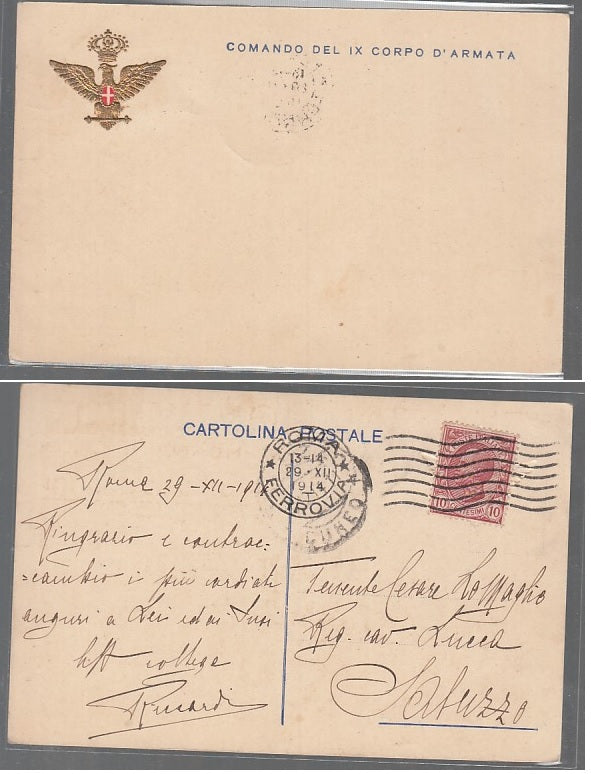 COMANDO DEL IX CORPO D'ARMATA
CARTOLINA POSTALE
ROMA
13-14
29·XII
1914
FERROVIA
CUNEO
10 CENTESIMI 10
Roma 29-XII-1914
Ringrazio e contrac=
=cambio i più cordiali
auguri a Lei ed ai Suoi
collega
Riccardi
Tenente Cesare Lomaglio
Reg. cav. Lucca
Saluzzo